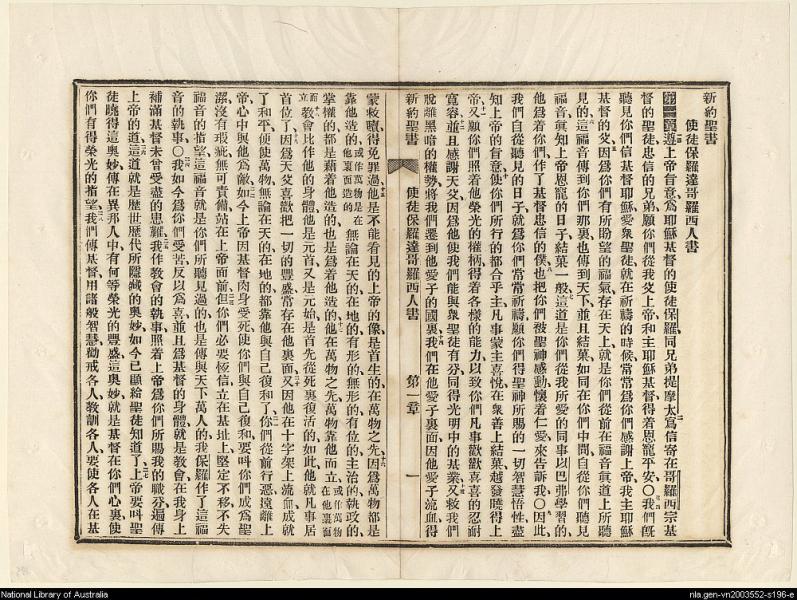 新約聖書
使徒保羅達哥羅西人書
第一章遵上帝旨意爲耶穌基督的使徒保羅同兄弟提摩太爲信寄在哥羅西宗基
督的聖徒忠信的兄弟願你們從我父上帝和主耶穌基督得着恩寵平安○我們旣
聽見你們信基督耶穌愛衆聖徒就在祈禱的時候常常爲你們感謝上帝我主耶穌
基督的父因爲你們有所盼望的福氣存在天上就是你們從前在福音眞道上所聽
見的這福音傳到你們那裏也傳到天下並且結菓如同在你們中間自從你們聽見
福音眞知上帝恩寵的日子結菓一般這道是你們從我所愛的同事以巴弗學習的
他爲着你們作了基督忠信的僕也把你們被聖神感動懷着仁愛來告訴我○因此
我們自從聽見的日子就爲你們常常祈禱願你們得聖神所賜的一切智慧悟性盡
知上帝的旨意使你們所行的都合乎主凡事蒙主喜悅在衆善上結菓越發曉得上
帝又願你們照着他榮光的權柄得着各樣的能力以致你們凡事歡歡喜喜的忍耐
寬容並且感謝天父因爲他使我們能與衆聖徒有分同得光明中的基業又救我們
脫離黑暗的權勢將我們遷到他愛子的國裏我們在他愛子裏面因他愛子流血得
新約聖書 使徒保羅達哥羅西人書 第一章 一
蒙救贖得免罪過他是不能看見的上帝的像是首生的在萬物之先因爲萬物都是
靠他造的或作萬物是在他裏面造的無論在天的在地的有形的無形的有位的主治的執政的
掌權的都是藉着他造的也是爲着他造的他在萬物之先萬物靠他而立或作萬物在他裏面
而立教會比作他的身體他是元首又是元始是首先從死裏復活的如此他就凡事居
首位了因爲天父喜歡把一切的豐盛常存在他裏面又因他在十字架上流血成就
了和平便使萬物無論在天的在地的都靠他與自己復和了你們從前行惡遠離上
帝心中與他爲敵如今上帝因基督肉身受死使你們與自己復和要叫你們成爲聖
潔沒有瑕疵無可責備站在上帝面前但你們必要恆信立在基址上堅定不移不失
福音的指望這福音就是你們所聽見過的也是傳與天下萬人的我保羅作了這福
音的執事○我如今爲你們受苦反以爲喜並且爲基督的身體就是教會在我身上
補滿基督未嘗受盡的患難我作教會的執事照着上帝爲你們所賜我的職分遍傳
上帝的道這道就是歷世歷代所隱藏的奧妙如今已顯給聖徒知道了上帝要叫聖
徒曉得這奧妙傳在異邦人中有何等榮光的豐盛這奧妙就是基督在你們心裏使
你們有得榮光的指望我們傳基督用諸般智慧勸戒各人教訓各人要使各人在基
National Library of Australia
nla.gen-vn2003552-s196-e